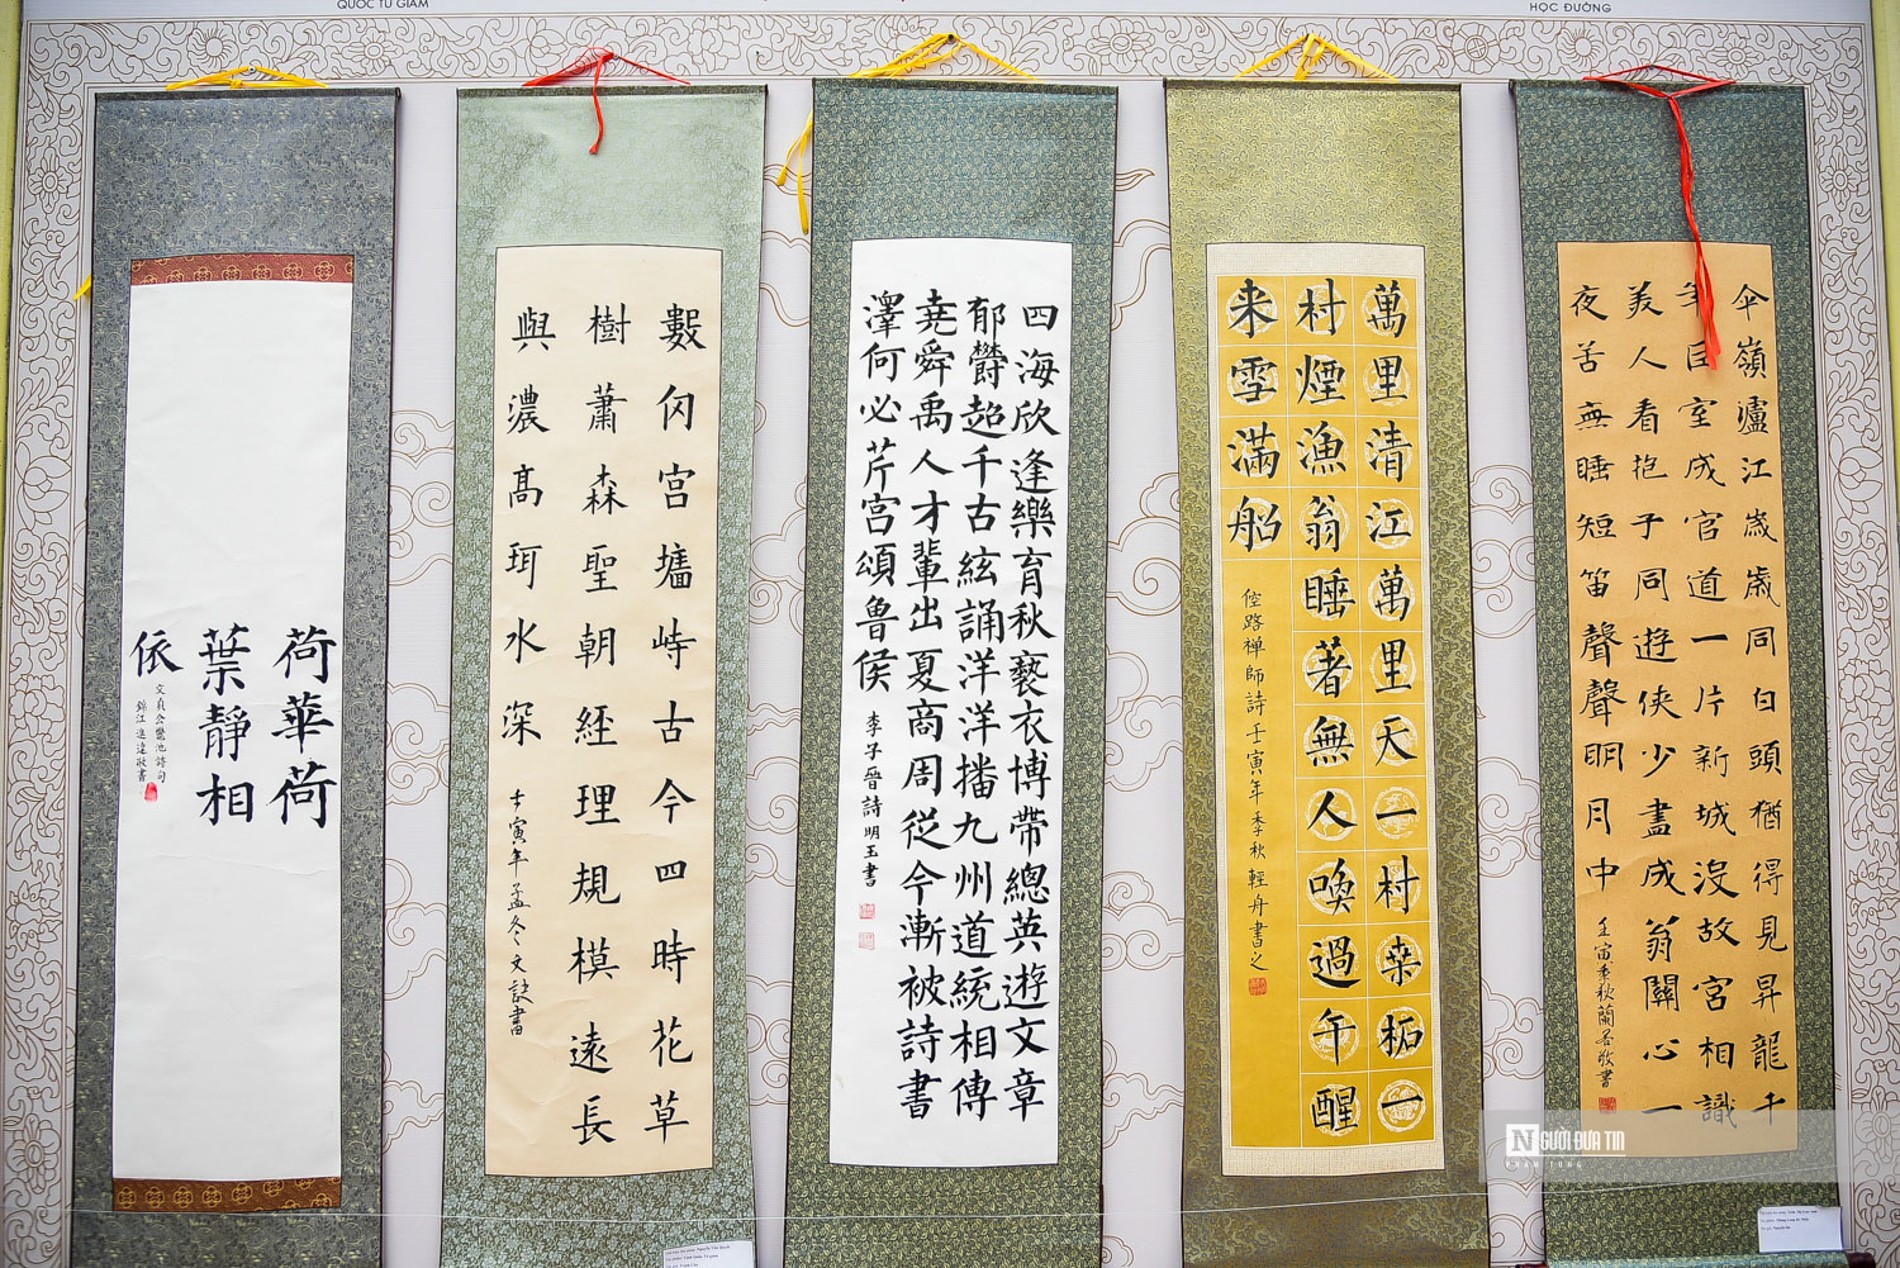 QUỐC TỬ GIÁM
HỌC ĐƯỜNG
荷華荷
葉靜相
依
文貞公鱉池詩句
錦江進達敬書
數仞宮墻峙古今四時花草
樹蕭森聖朝經理規模遠長
與濃高珂水深
壬寅年孟冬文訣書
四海欣逢樂育秋褻衣博帶總英遊文章
郁欝超千古絃誦洋洋播九州道統相傳
堯舜禹人才輩出夏商周從今漸被詩書
澤何必芹宮頌魯侯
李子晉詩明玉書
萬里清江萬里天一村桑柘一
村煙漁翁睡著無人喚過午醒
来雪滿船
倥路禅師詩壬寅年季秋輕舟書之
傘嶺瀘江歲歲同白頭猶得見昇龍千
年巨室成官道一片新城沒故宮相識
美人看抱子同遊俠少盡成翁關心一
夜苦無睡短笛聲聲明月中
壬寅季秋蘭若敬書
NGƯỜI ĐƯA TIN
PHẠM TÙNG